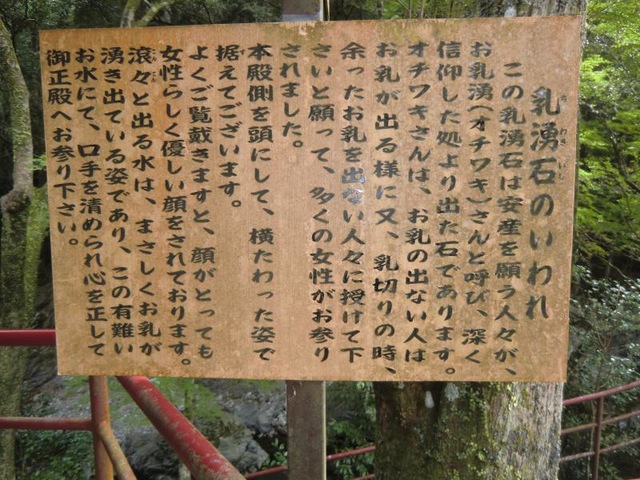 乳湧石のいわれ
ち わき いし
この乳湧石は安産を願う人々が、
お乳湧(オチワキ)さんと呼び、深く
信仰した処より出た石であります。
オチワキさんは、お乳の出ない人は
お乳が出る様に又、乳切りの時、
余ったお乳を出ない人々に授けて下
さいと願って、多くの女性がお参り
されました。
本殿側を頭にして、横たわった姿で
据えてございます。
よくご覧戴きますと、顔がとっても
女性らしく優しい顔をされております。
滾々と出る水は、まさしくお乳が
湧き出ている姿であり、この有難い
お水にて、口手を清められ心を正して
御正殿へお参り下さい。